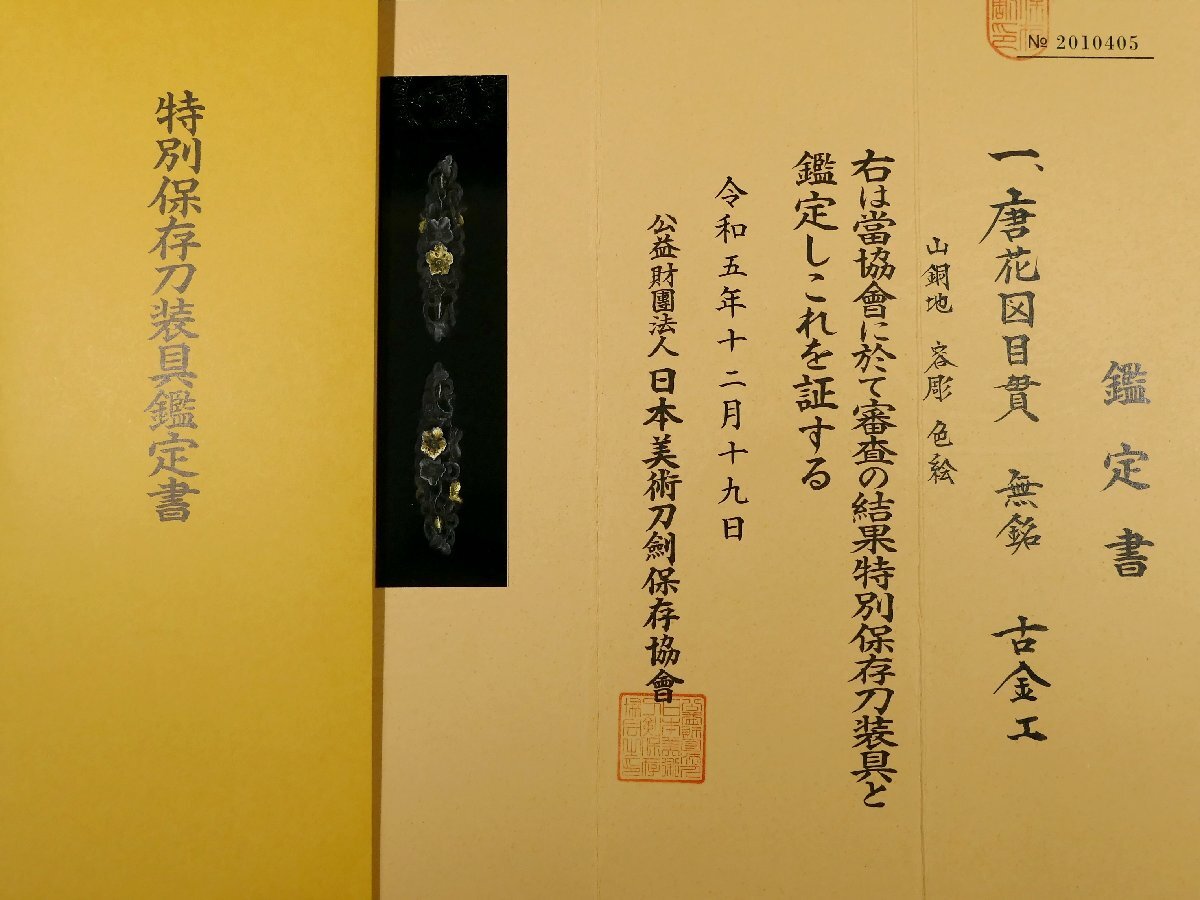 № 2010405
鑑定書
一、唐花図目貫 無銘 古金工
山銅地 容彫 色絵
右は當協會に於て審査の結果特別保存刀装具と
鑑定しこれを証する
令和五年十二月十九日
公益財團法人 日本美術刀劍保存協會
特別保存刀装具鑑定書